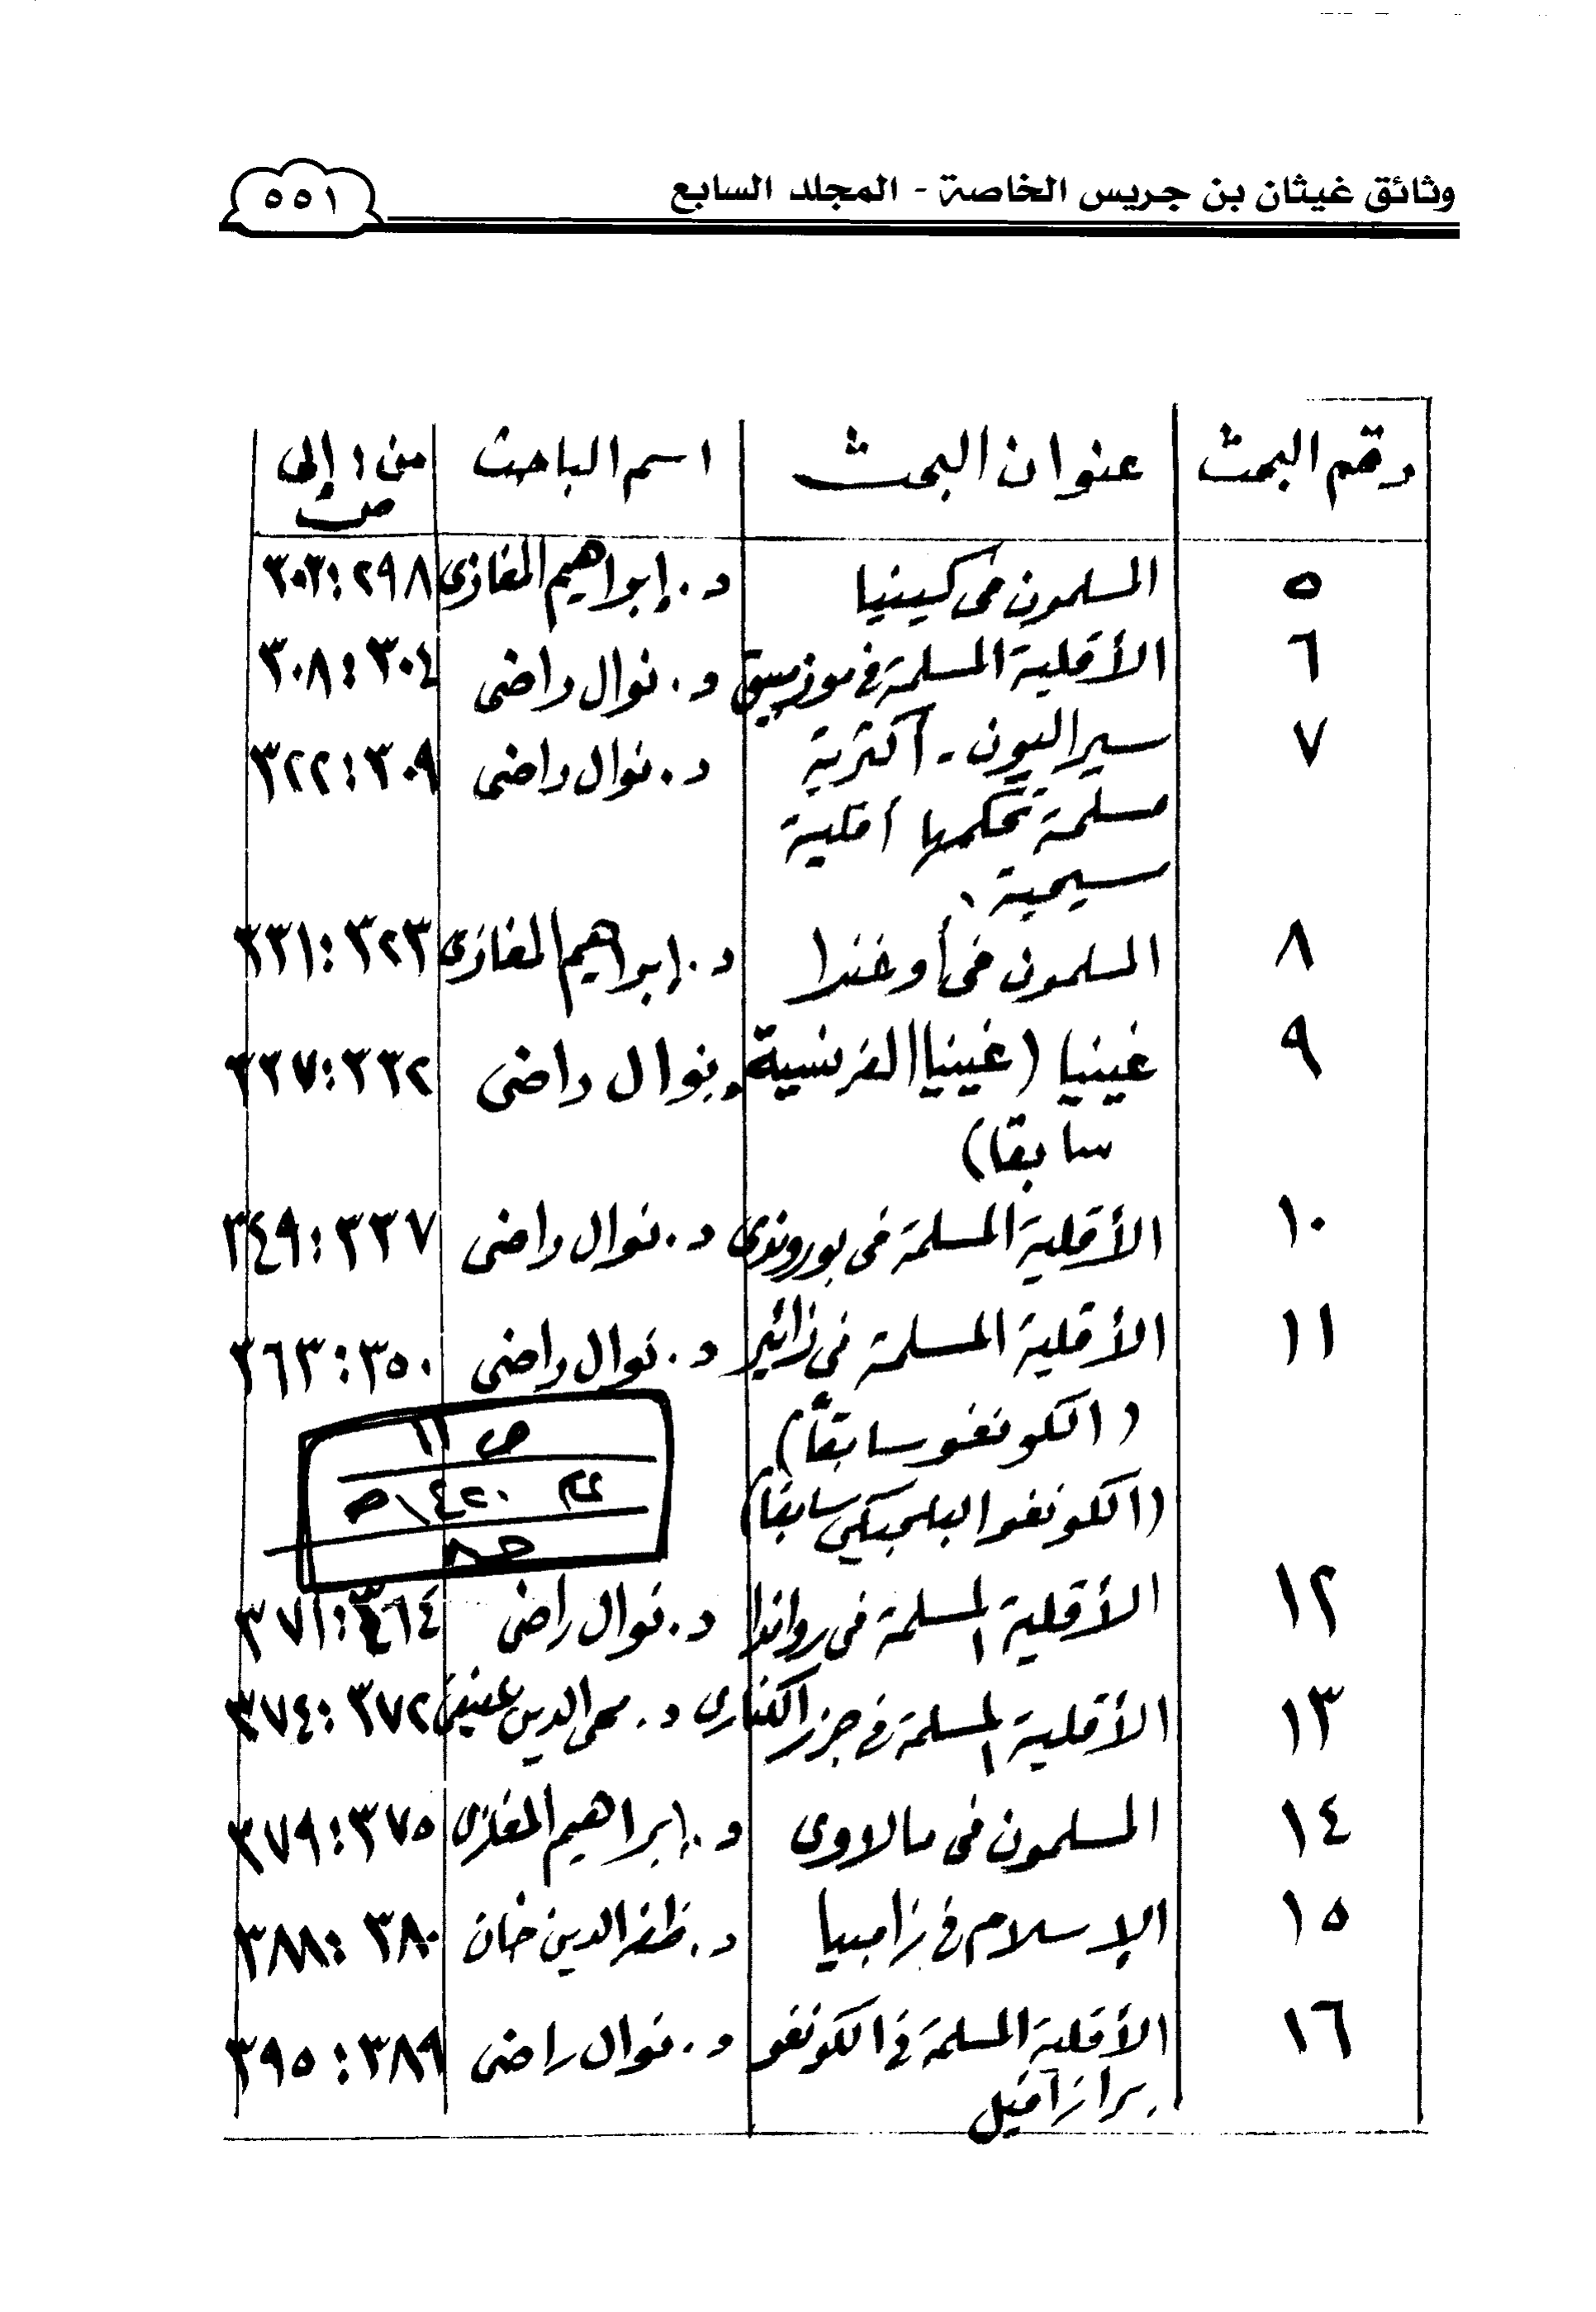 وثائق غيثان بن جريس الخاصة - المجلد السابع
٥٥١
رقم البحث عنوان البحث اسم الباحث من : إلى
ص
٥ المسلمون فى كينيا د. إبراهيم المغازى ٢٩٨ : ٣٠٣
٦ الأقلية المسلمة فى موزمبيق د. نوال راضى ٣٠٤ : ٣٠٨
٧ سيراليون - أكثرية د. نوال راضى ٣٠٩ : ٣٢٢
مسلمة تحكمها أقلية
مسيحية.
٨ المسلمون فى أوغندا د. إبراهيم المغازى ٣٢٣ : ٣٣١
٩ غينيا (غينيا الفرنسية د. نوال راضى ٣٣٢ : ٣٣٧
سابقا)
١٠ الأقلية المسلمة فى بوروندى د. نوال راضى ٣٣٧ : ٣٤٩
١١ الأقلية المسلمة فى زائير د. نوال راضى ٣٥٠ : ٣٦٣
(الكونغو سابقاً)
ص ١١
(الكونغو البلجيكى سابقاً)
١٤٢٠
١٢ الأقلية المسلمة فى رواندا د. نوال راضى ٣٦٤ : ٣٧١
١٣ الأقلية المسلمة فى جزر الكنارى د. محى الدين عفيفى ٣٧٢ : ٣٧٤
١٤ المسلمون فى مالاوى د. إبراهيم المغازى ٣٧٥ : ٣٧٩
١٥ الإسلام فى زامبيا د. ظفر الدين خان ٣٨٠ : ٣٨٨
١٦ الأقلية المسلمة فى الكونغو د. نوال راضى ٣٨٩ : ٣٩٥
برازافيل